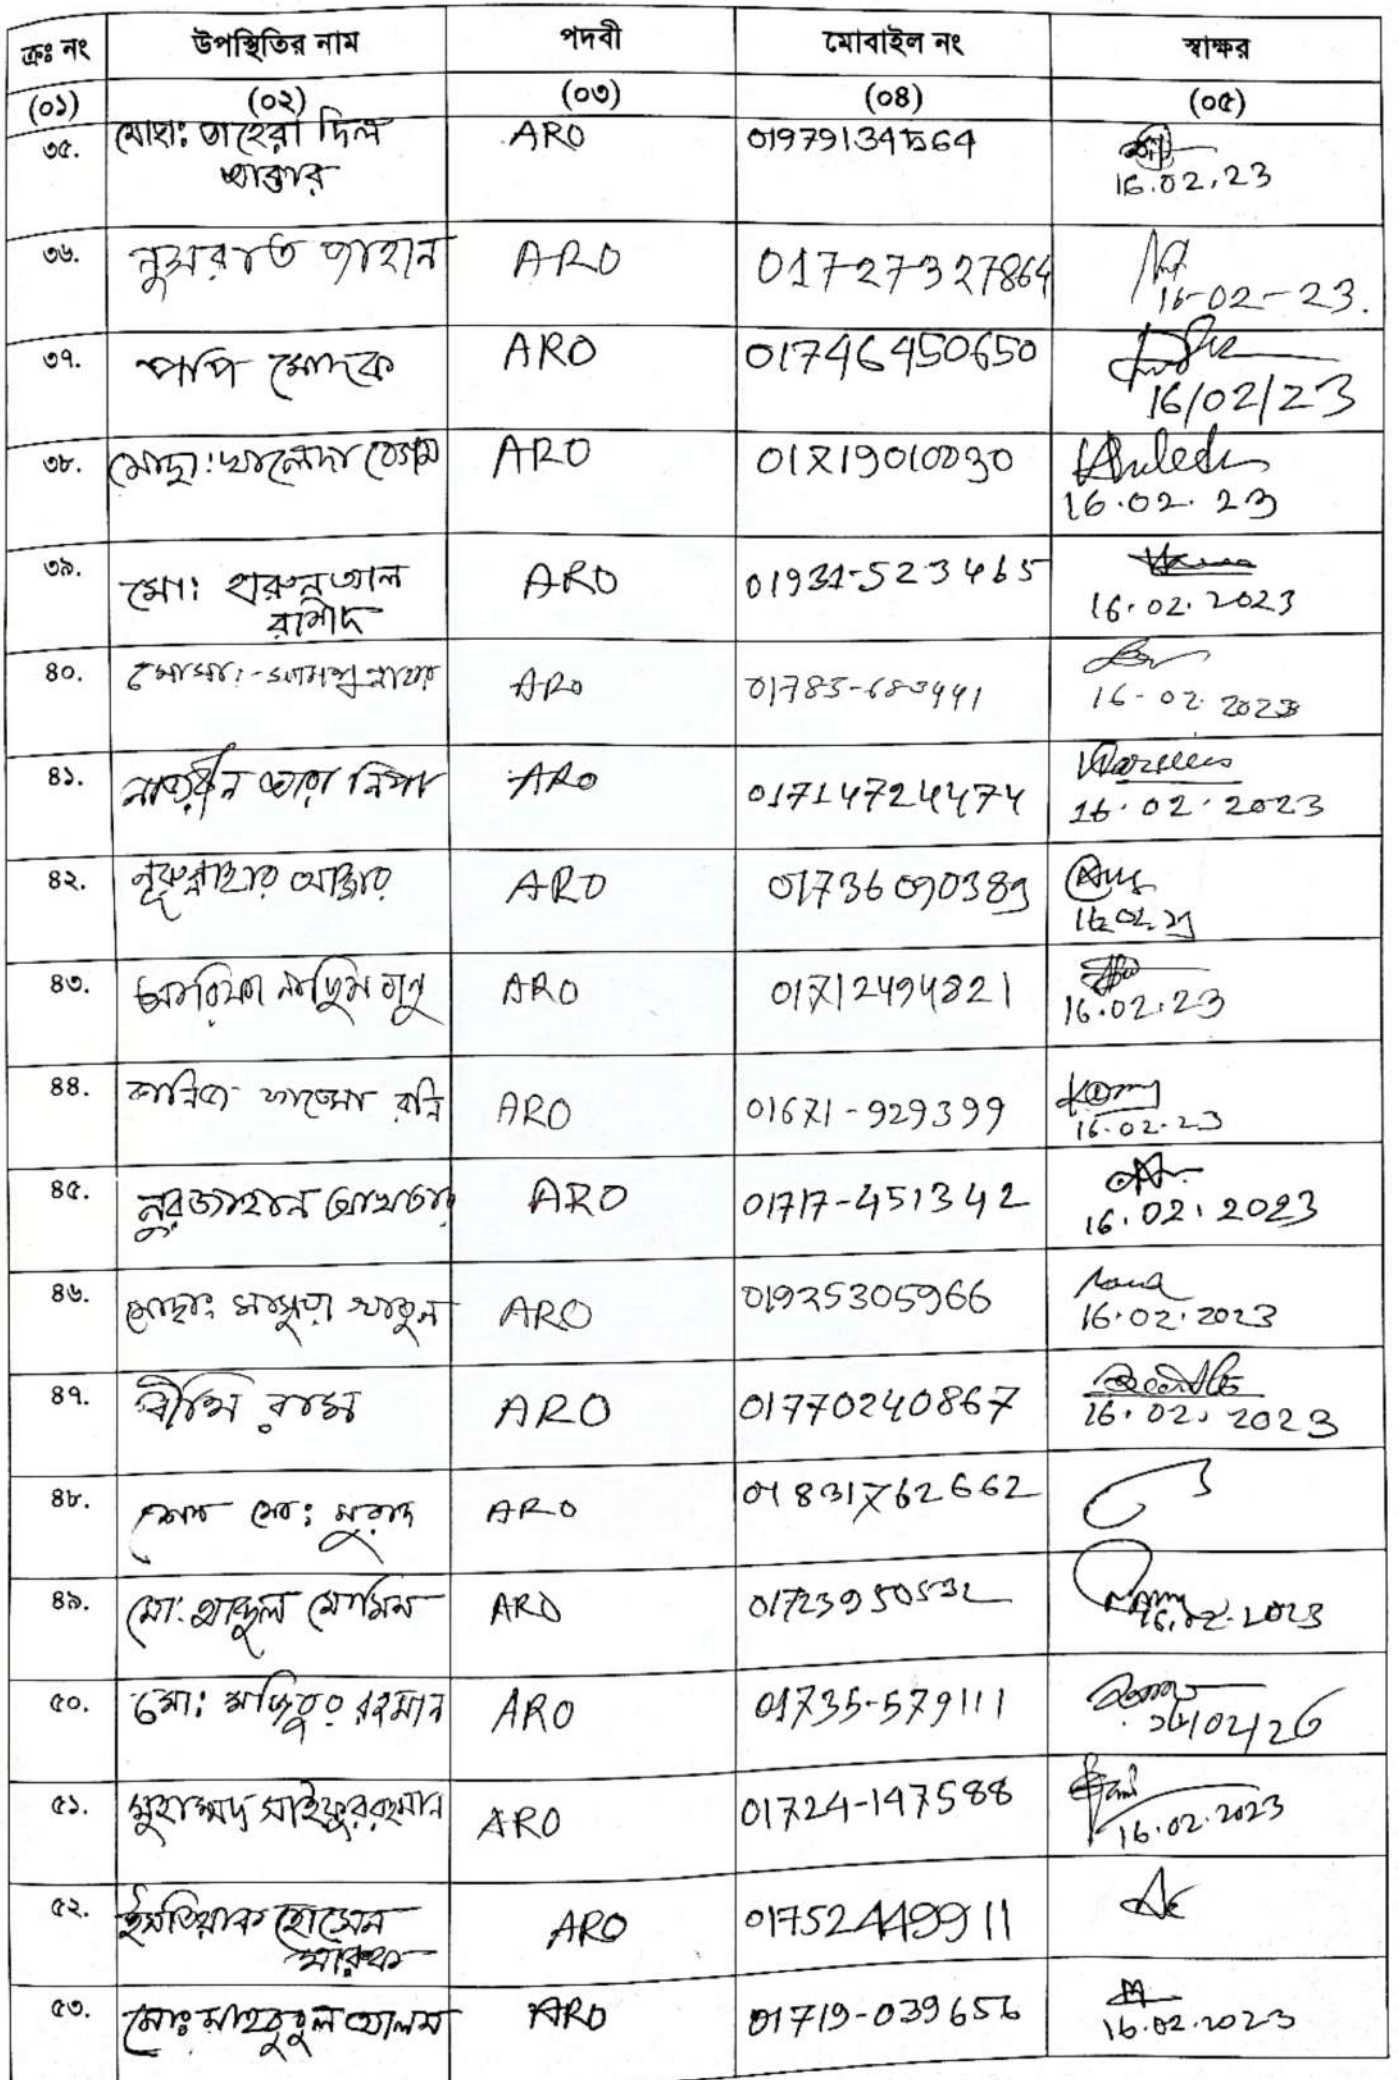 ক্রঃ নং উপস্থিতির নাম পদবী মোবাইল নং স্বাক্ষর
(০১) (০২) (০৩) (০৪) (০৫)
৩৫. মোছা: তাহেরা দিল ARO 01979134564
আক্তার 16.02.23
৩৬. নুসরাত জাহান ARO 01727327864
16-02-23.
৩৭. পপি মোদক ARO 01746450650
16/02/23
৩৮. মোছা: খালেদা বেগম ARO 01719010030 Khaleda
16.02.23
৩৯. মো: হারুন অাল ARO 01931-523465
রশীদ 16.02.2023
৪০. ARO
16-02-2023
৪১. নাজরীন আরা নিপা ARO 01714724474
16.02.2023
৪২. নূরুন্নাহার আক্তার ARO 01736090389
16.02.23
৪৩. আরিফা ARO 01712494821
16.02.23
৪৪. কানিজ ফাতেমা রনি ARO 01671-929399
16.02.23
৪৫. নুরজাহান আখতার ARO 01717-451342
16.02.2023
৪৬. মোছা: মাসুরা খাতুন ARO 01925305966
16.02.2023
৪৭. ARO 01770240867
16.02.2023
৪৮. শেখ মো: মুরাদ ARO 01831762662
৪৯. মো: আব্দুল মোমিন ARO 01723950532
16.02.2023
৫০. মো: মজিবুর রহমান ARO 01735-579111
৫১. মুহাম্মদ সাইফুর রহমান ARO 01724-147588
16.02.2023
৫২. ইসতিয়াক হোসেন ARO 01752449911
৫৩. মোঃ মাহবুবুল আলম ARO 01719-039656
16.02.2023